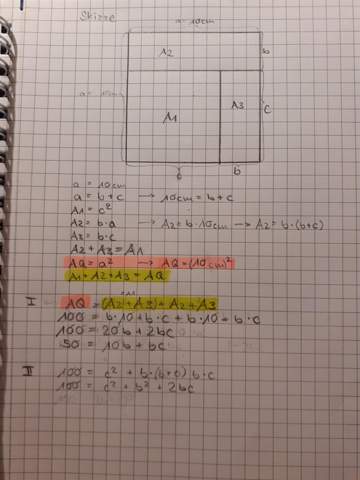 Skizze
a = 10cm
A2
b
a = 10cm
A1
A3
c
c
b
a = 10cm
a = b + c → 10cm = b + c
A1 = c²
A2 = b · a → A2 = b · 10cm → A2 = b · (b + c)
A3 = b · c
A2 + A3 = A1
AQ = a² → AQ = (10cm)²
A1 + A2 + A3 = AQ
I AQ = (A2 + A3) + A2 + A3
100 = b · 10 + b · c + b · 10 + b · c
100 = 20b + 2bc
50 = 10b + bc
II 100 = c² + b · (b + c) b · c
100 = c² + b² + 2bc